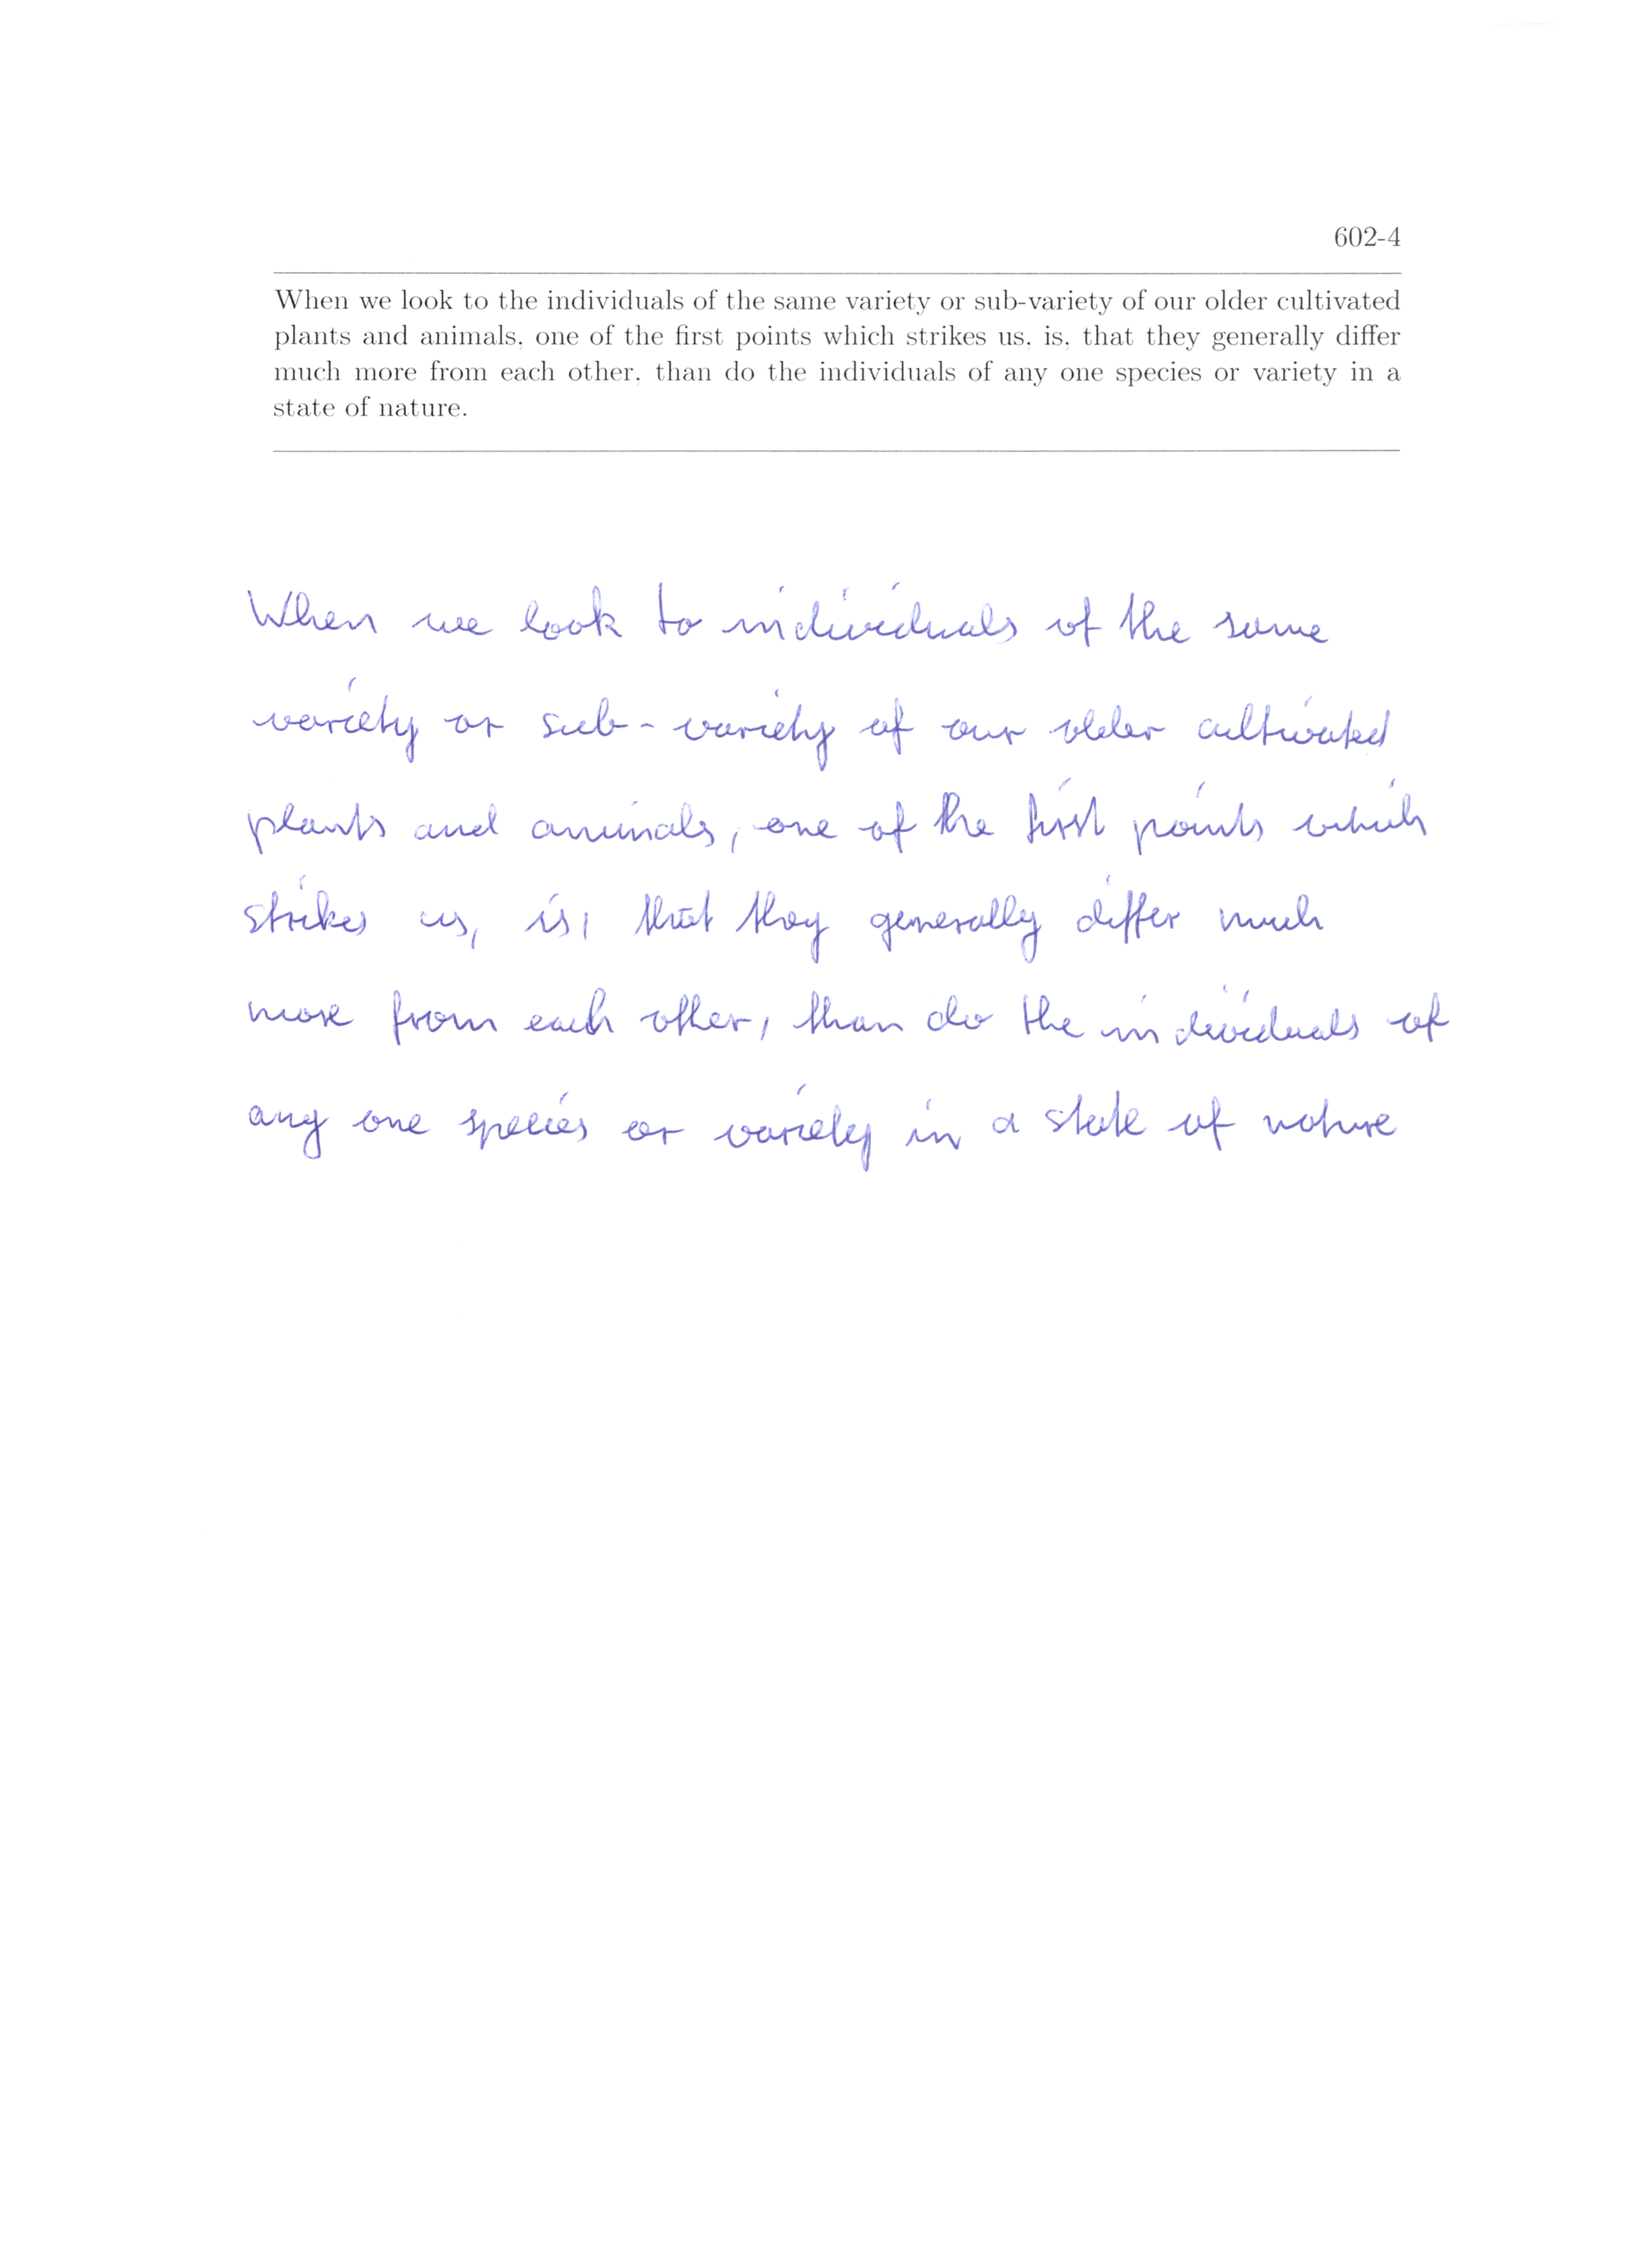 602-4
When we look to the individuals of the same variety or sub-variety of our older cultivated
plants and animals, one of the first points which strikes us, is, that they generally differ
much more from each other, than do the individuals of any one species or variety in a
state of nature.
When we look to individuals of the same
variety or sub-variety of our older cultivated
plants and animals, one of the first points which
strikes us, is, that they generally differ much
more from each other, than do the individuals of
any one species or variety in a state of nature